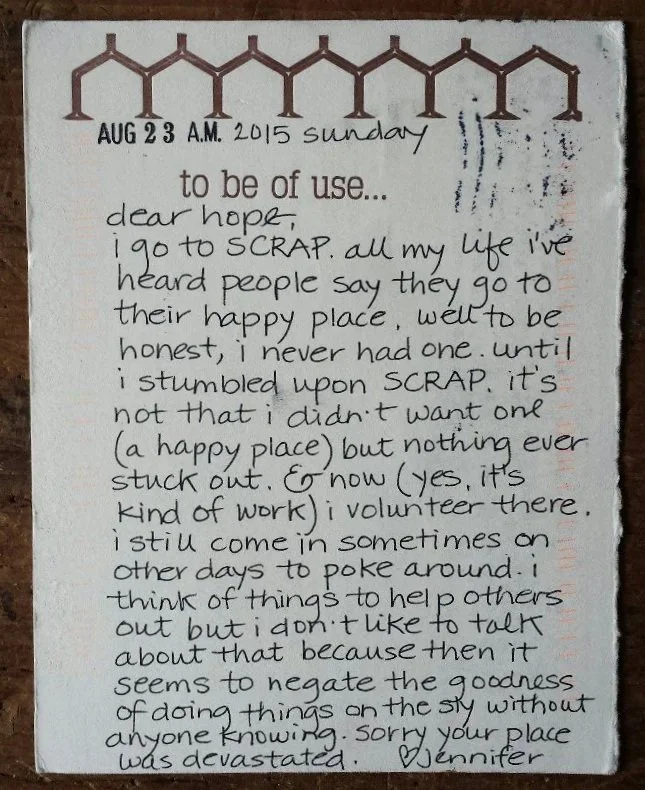 AUG 23 A.M. 2015 sunday
to be of use...
dear hope,
i go to SCRAP. all my life i've
heard people say they go to
their happy place, well to be
honest, i never had one. until
i stumbled upon SCRAP. it's
not that i didn't want one
(a happy place) but nothing ever
stuck out. & now (yes, it's
kind of work) i volunteer there.
i still come in sometimes on
other days to poke around. i
think of things to help others
out but i don't like to talk
about that because then it
seems to negate the goodness
of doing things on the sly without
anyone knowing. sorry your place
was devastated. ♡Jennifer